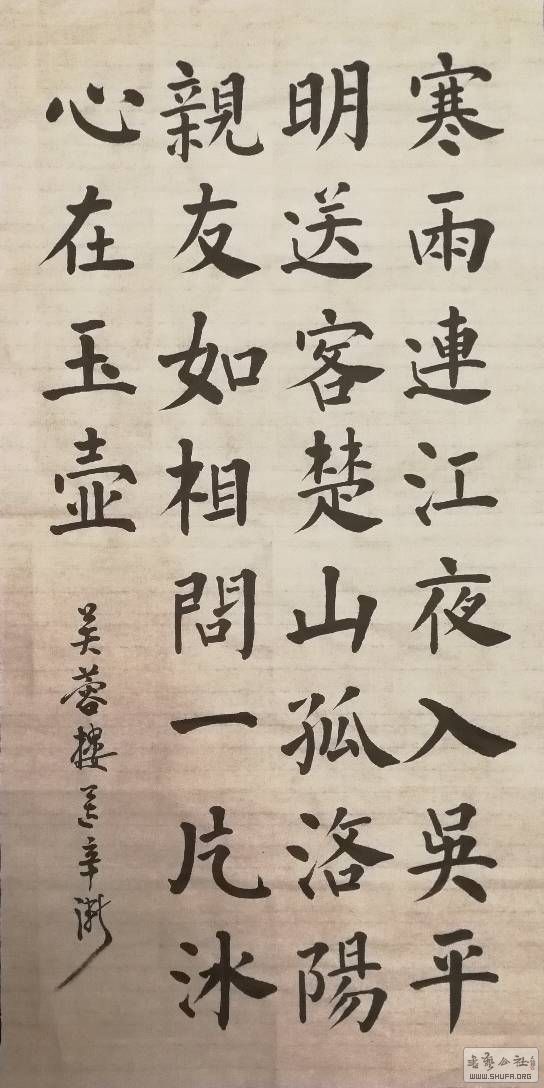 寒雨連江夜入吳平
明送客楚山孤洛陽
親友如相問一片冰
心在玉壺
芙蓉樓送辛漸
书法公社
WWW.SHUFA.ORG